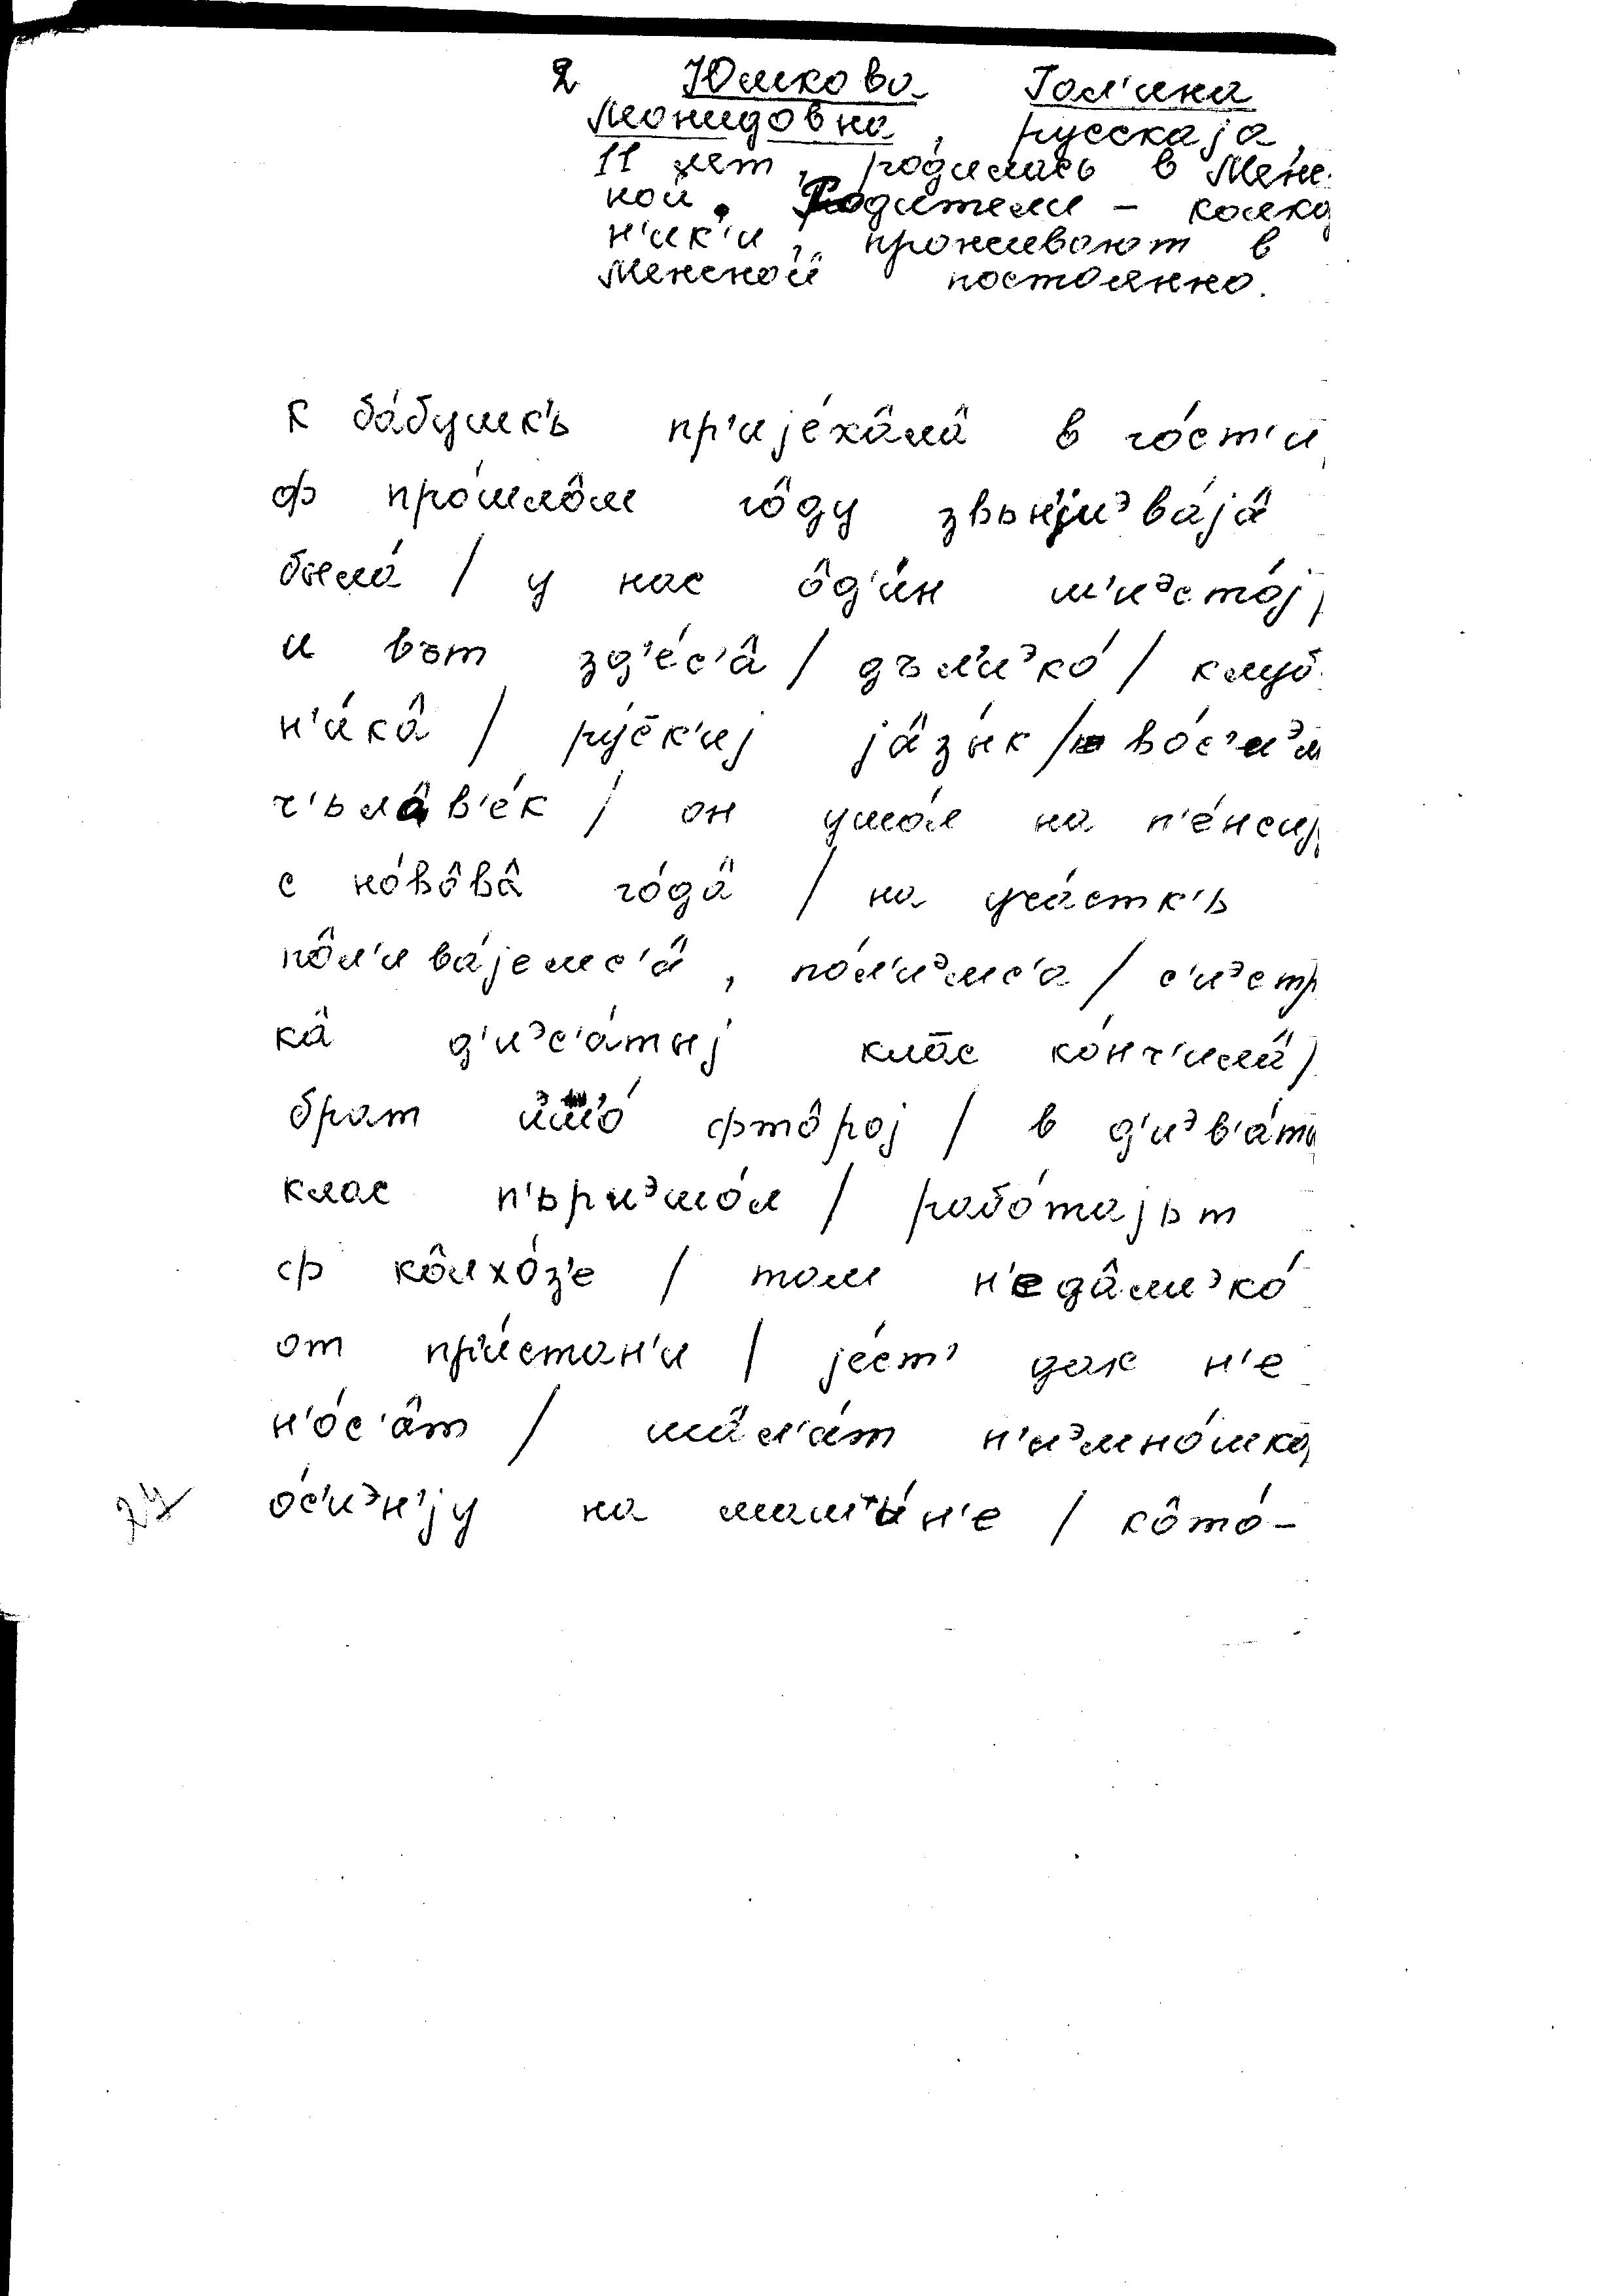 2 Юшкова Гал'ина
Леонидовна, русскаjа,
11 лет, родилась в Менс
кой. Родители – колхо
н'ик'и, проживают в
Менской постоянно.
к ба́бушк'ь пр'иjе́хâлâ в го́ст'и
ф про́шлôм го́ду звьн'jиэва́jâ
была́ / у нас ôд'и́н ш'иэсто́j /
и вът зд'е́с'â / дъл'иэко́ / клуб
н'и́кâ / ру́с̄к'иj jâзы́к / во́с'иэм
ч'ьлâв'е́к / он ушо́л на п'е́нсиj
с но́вôвâ го́дâ / на уча́стк'ь
пôл'ива́jемс'â, по́л'иэмс'а / с'иэстр
кâ д'иэс'а́тыj кла̄с ко́нч'илâ /
брат иэшо́ фтôрој / в д'иэв'а́ты
клас п'ьриэшо́л / рабо́таjьт
ф кôлхо́з'е / там н'едâлиэко́
от при́стан'и / jе́ст' дак н'е
н'о́с'âт / шâл'а́т н'иэмно́шко
о́с'иэн'jу на машы́н'е / кôто́-
27